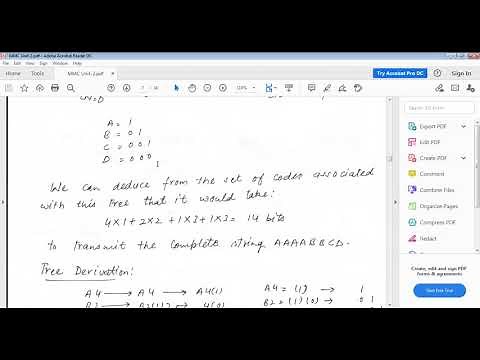 MMC Unit-2.pdf - Adobe Acrobat Reader DC
File Edit View Sign Window Help
Home Tools MMC Unit-2.pdf
Try Acrobat Pro DC Sign In
A = 1
B = 01
C = 001
D = 000
We can deduce from the set of codes associated
with this tree that it would take:
4x1 + 2x2 + 1x3 + 1x3 = 14 bits
to transmit the complete string AAAABBCD.
Tree Derivation:
A4 → A4 → A4(1) A4 = (1) → 1
B2 = (1)(0) → 01
Export PDF
Edit PDF
Create PDF
Comment
Combine Files
Organize Pages
Compress PDF
Redact
Create, edit and sign PDF
forms & agreements
Start Free Trial